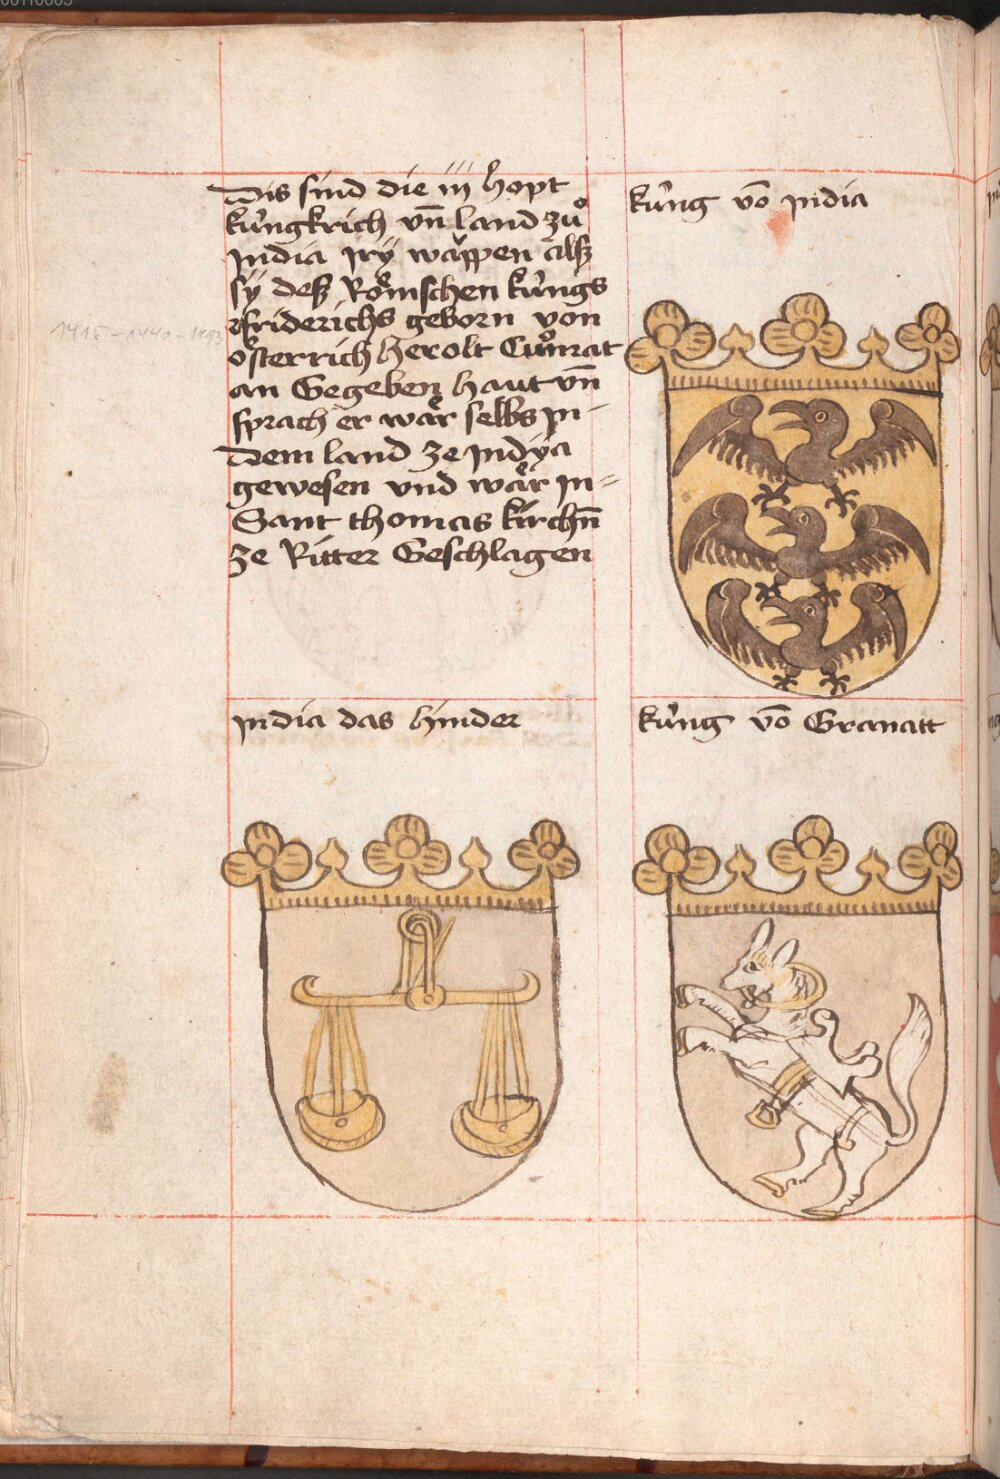 Dis sind die iij hopt
kúngkrich vn̄ land zů
India jry wäppen alß
sÿ deß Römschen kúngs
friderichs geborn von
österrich herolt Cůnrat
an Gegeben haut vn̄
sprach er wär selbs jn-
Dem land ze Indÿa
gewesen vnd wär jn=
Sant thomas kirchn̄
ze Ritter Geschlagen
kúng vō India
India das hinder
kúng vō Granatt
1415-1440-1493